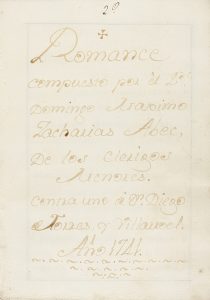 2º
Romance
compuesto por el Pe.
Domingo Maximo
Zacharias Abec,
De los Clerigos
Menores.
contra uno de Dn. Diego
Torres y Villarroel.
Año 1741.